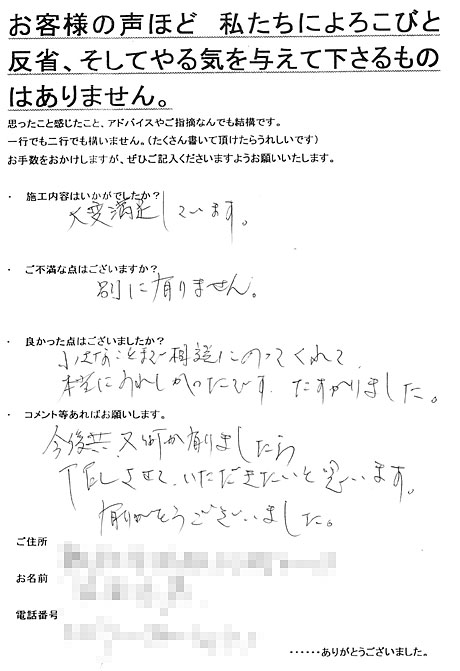 お客様の声ほど 私たちによろこびと
反省、そしてやる気を与えて下さるもの
はありません。
思ったこと感じたこと、アドバイスやご指摘なんでも結構です。
一行でも二行でも構いません。(たくさん書いて頂けたらうれしいです)
お手数をおかけしますが、ぜひご記入くださいますようお願いいたします。
・ 施工内容はいかがでしたか?
大変満足しています。
・ ご不満な点はございますか?
別に有りません。
・ 良かった点はございましたか?
小さなことまで相談にのってくれて
本当にうれしかったです。たすかりました。
・ コメント等あればお願いします。
今後共、又何か有りましたら
TELさせていただきたいと思います。
有りがとうございました。
ご住所
お名前
電話番号
‥‥‥ありがとうございました。